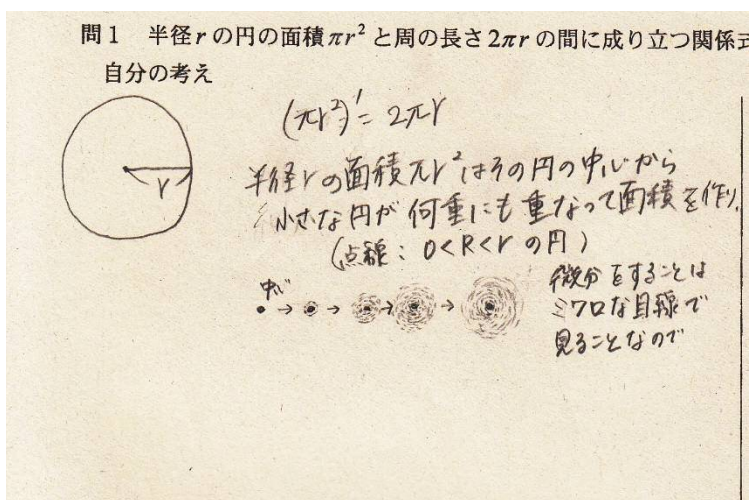 問1 半径rの円の面積πr²と周の長さ2πrの間に成り立つ関係式
自分の考え
(πr²)'=2πr
r
半径rの面積πr²はその円の中心から
小さな円が何重にも重なって面積を作り、
(点線:0<R<rの円)
中心
→ → → →
微分をすることは
ミクロな目線で
見ることなので